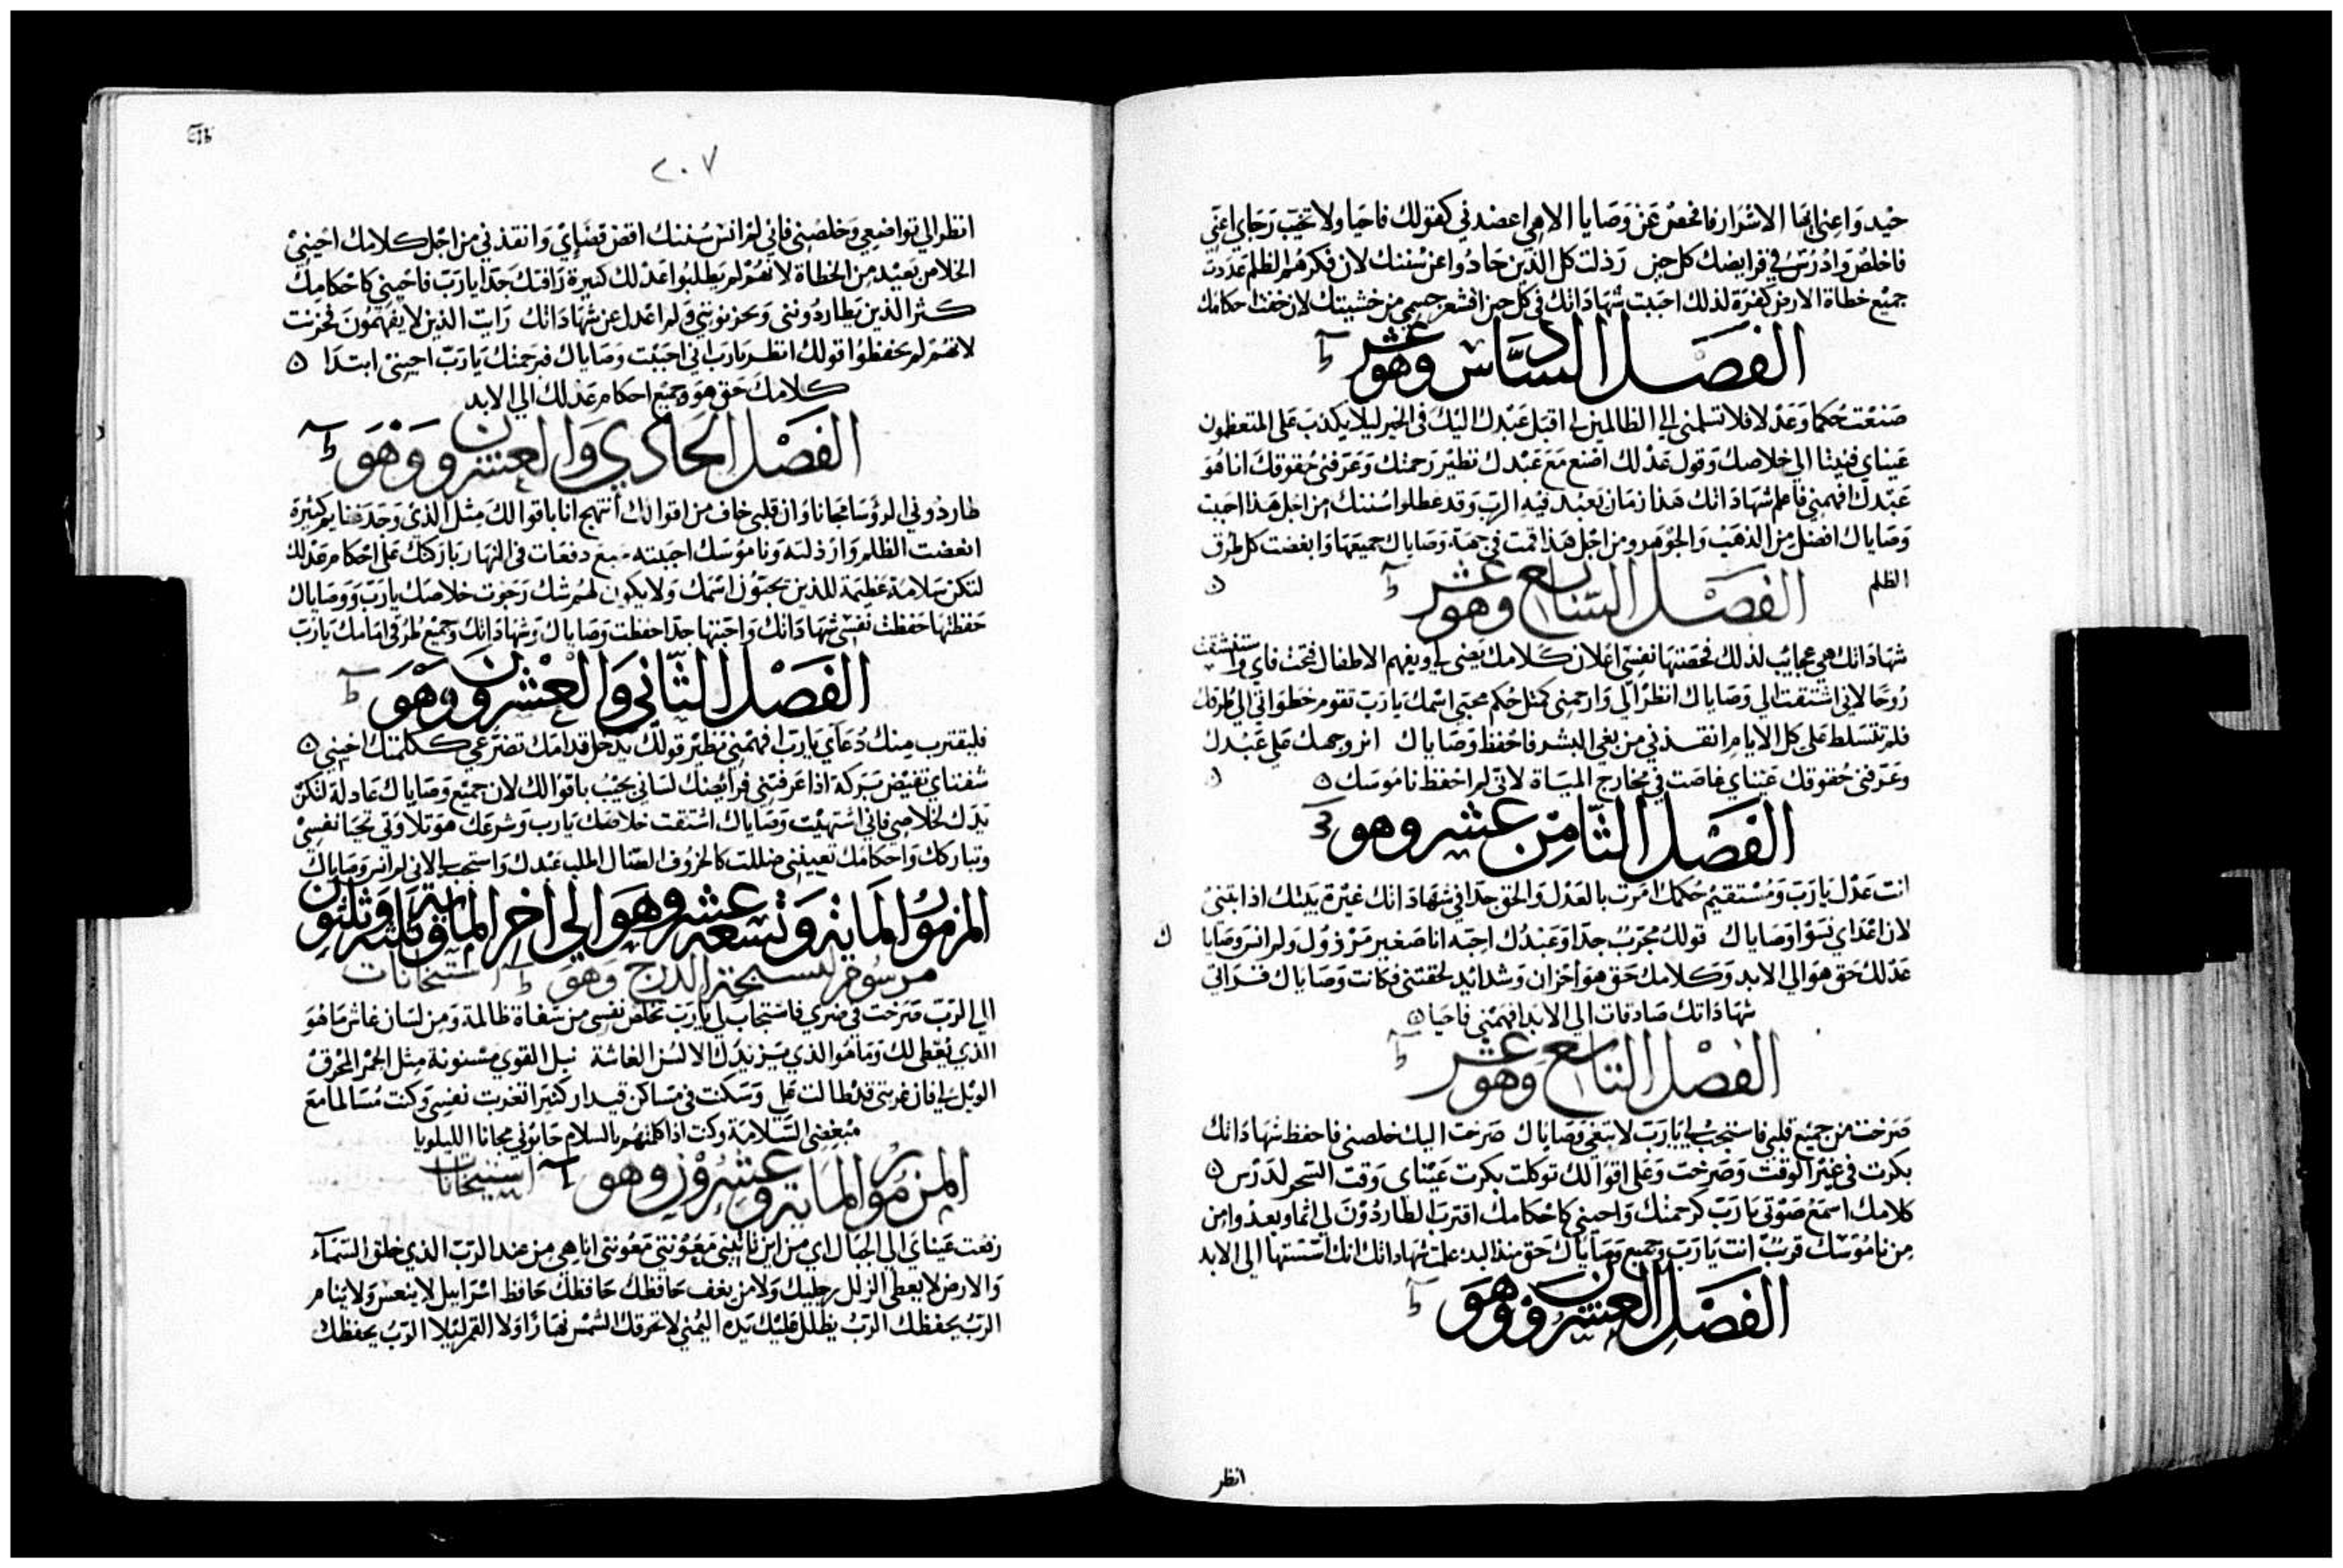 حيد واعني ايها الاشرار فافحص عن وصايا الاهي اعضدني كقولك فاحيا ولا تخيب رجاي اعني
فاخلص وادرس في فرايضك كل حين رذلت كل الذين حادوا عن سننك لان فكرهم الظلم عددت
جميع خطاة الارض كفرة لذلك احببت شهاداتك في كل حين اقشعر جسمي من خشيتك لان خفت احكامك
الفصل السادس عشر وهو
صنعت حكما وعدلا فلا تسلمني الي الظالمين لي اقبل عبدك اليك في الخير ليلا يكذب علي المتعظمون
عيناي فنيتا الي خلاصك وقول عدلك اصنع مع عبدك نظير رحمتك وعرفني حقوقك انا هو
عبدك افهمني فاعلم شهاداتك هذا زمان يعبد فيه الرب وقد عطلوا سننك من اجل هذا احببت
وصاياك افضل من الذهب والجوهر ومن اجل هذا اقمت في جهة وصاياك جميعها وابغضت كل طرق
الظلم
الفصل السابع عشر وهو
شهاداتك هي عجايب لذلك فحصتها نفسي اعلان كلامك يضي لي ويفهم الاطفال فتحت فاي واستنشقت
روحا لاني اشتقت الي وصاياك انظر الي وارحمني كمثل حكم محبي اسمك يا رب تقوم خطواتي الي طرقك
فلم تتسلط علي كل الايام انقذني من بغي البشر فاحفظ وصاياك انر وجهك علي عبدك
وعرفني حقوقك عيناي غاصت في مخارج المياة لاني لم احفظ ناموسك
الفصل الثامن عشر وهو
انت عدل يا رب ومستقيم حكمك امرت بالعدل والحق جدا في شهاداتك غيرة بيتك اذابتني
لان اعداي نسوا وصاياك قولك مجرب جدا وعبدك احبه انا صغير مرذول ولم انس وصايا ك
عدلك حق هو الي الابد وكلامك حق هو احزان وشدايد لحقتني فكانت وصاياك قراتي
شهاداتك صادقات الي الابد افهمني فاحيا
الفصل التاسع عشر وهو
صرخت من جميع قلبي فاستجب لي يا رب لابتغي وصاياك صرخت اليك خلصني فاحفظ شهاداتك
بكرت في غير الوقت وصرخت وعلي اقوالك توكلت بكرت عيناي وقت السحر لدرس
كلامك اسمع صوتي يا رب كرحمتك واحيني كاحكامك اقترب الطاردون لي اثما وبعدوا من
من ناموسك قريب انت يا رب وجميع وصاياك حق منذ البدء علمت شهاداتك انك اسستها الي الابد
الفصل العشرون وهو
انظر
٢٠٧
انظر الي تواضعي وخلصني فاني لم انس سننك اقض قضاي وانقذني من اجل كلامك احيني
الخلاص بعيد من الخطاة لانهم لم يطلبوا عدلك كثيرة رافتك جدا يا رب فاحيني كاحكامك
كثر الذين يطاردونني ويحزنونني ولم اعدل عن شهاداتك رايت الذين لا يفهمون فحزنت
لانهم لم يحفظوا قولك انظر يا رب اني احببت وصاياك فبرحمتك يا رب احيني ابتدا
كلامك حق هو وجميع احكام عدلك الي الابد
الفصل الحادي والعشرون وهو
طاردوني الروسا مجانا وان قلبي خاف من اقوالك ابتهج انا باقوالك مثل الذي وجد غنايم كثيرة
ابغضت الظلم وارذلته وناموسك احببته سبع دفعات في النهار باركتك علي احكام عدلك
لتكن سلامة عظيمة للذين يحبون اسمك ولا يكون لهم شك رجوت خلاصك يا رب ووصاياك
حفظتها حفظت نفسي شهاداتك واحبتها جدا حفظت وصاياك وشهاداتك وجميع طرقي امامك يا رب
الفصل الثاني والعشرون وهو
فليقترب منك دعاي يا رب افهمني نظير قولك يدخل قدامك تضرعي ككلمتك احيني
شفتاي تفيض بركة اذا عرفتني فرايضك لساني يجيب باقوالك لان جميع وصاياك عادلة لتكن
يدك لخلاصي فاني اشتهيت وصاياك اشتقت خلاصك يا رب وشرعك هو تلاوتي تحيا نفسي
وتباركك واحكامك تعينني ضللت كالخروف الضال اطلب عبدك واستجب لي لاني لم انس وصاياك
المزمور الماية وتسعة عشر وهو الي اخر الماية وثلثة وثلثون
مرسوم لتسبحة الدرج وهو استيخانات
الي الرب صرخت في ضري فاستجاب لي يا رب تخلص نفسي من شفاة ظالمة ومن لسان غاش ما هو
الذي يعطي لك وما هو الذي يزيدك الالسن الغاشة نبل القوي مسنونة مثل الجمر المحرق
الويل لي فان غربتي قد طالت علي وسكنت في مساكن قيدار كثيرا تغربت نفسي وكنت مسالما مع
مبغضي السلامة وكنت اذا كلمتهم بالسلام حاربوني مجانا الليلويا
المزمور الماية وعشرون وهو استيخانات
رفعت عيناي الي الجبال اي من اين تاتيني معونتي معونتي انا هي من عند الرب الذي خلق السماء
والارض لا يعطي الزلل رجليك ولا من يغف حافظك حافظك حافظ اسراييل لا ينعس ولا ينام
الرب يحفظك الرب يظلل عليك يده اليمني لا تحرقك الشمس نهارا ولا القمر ليلا الرب يحفظك